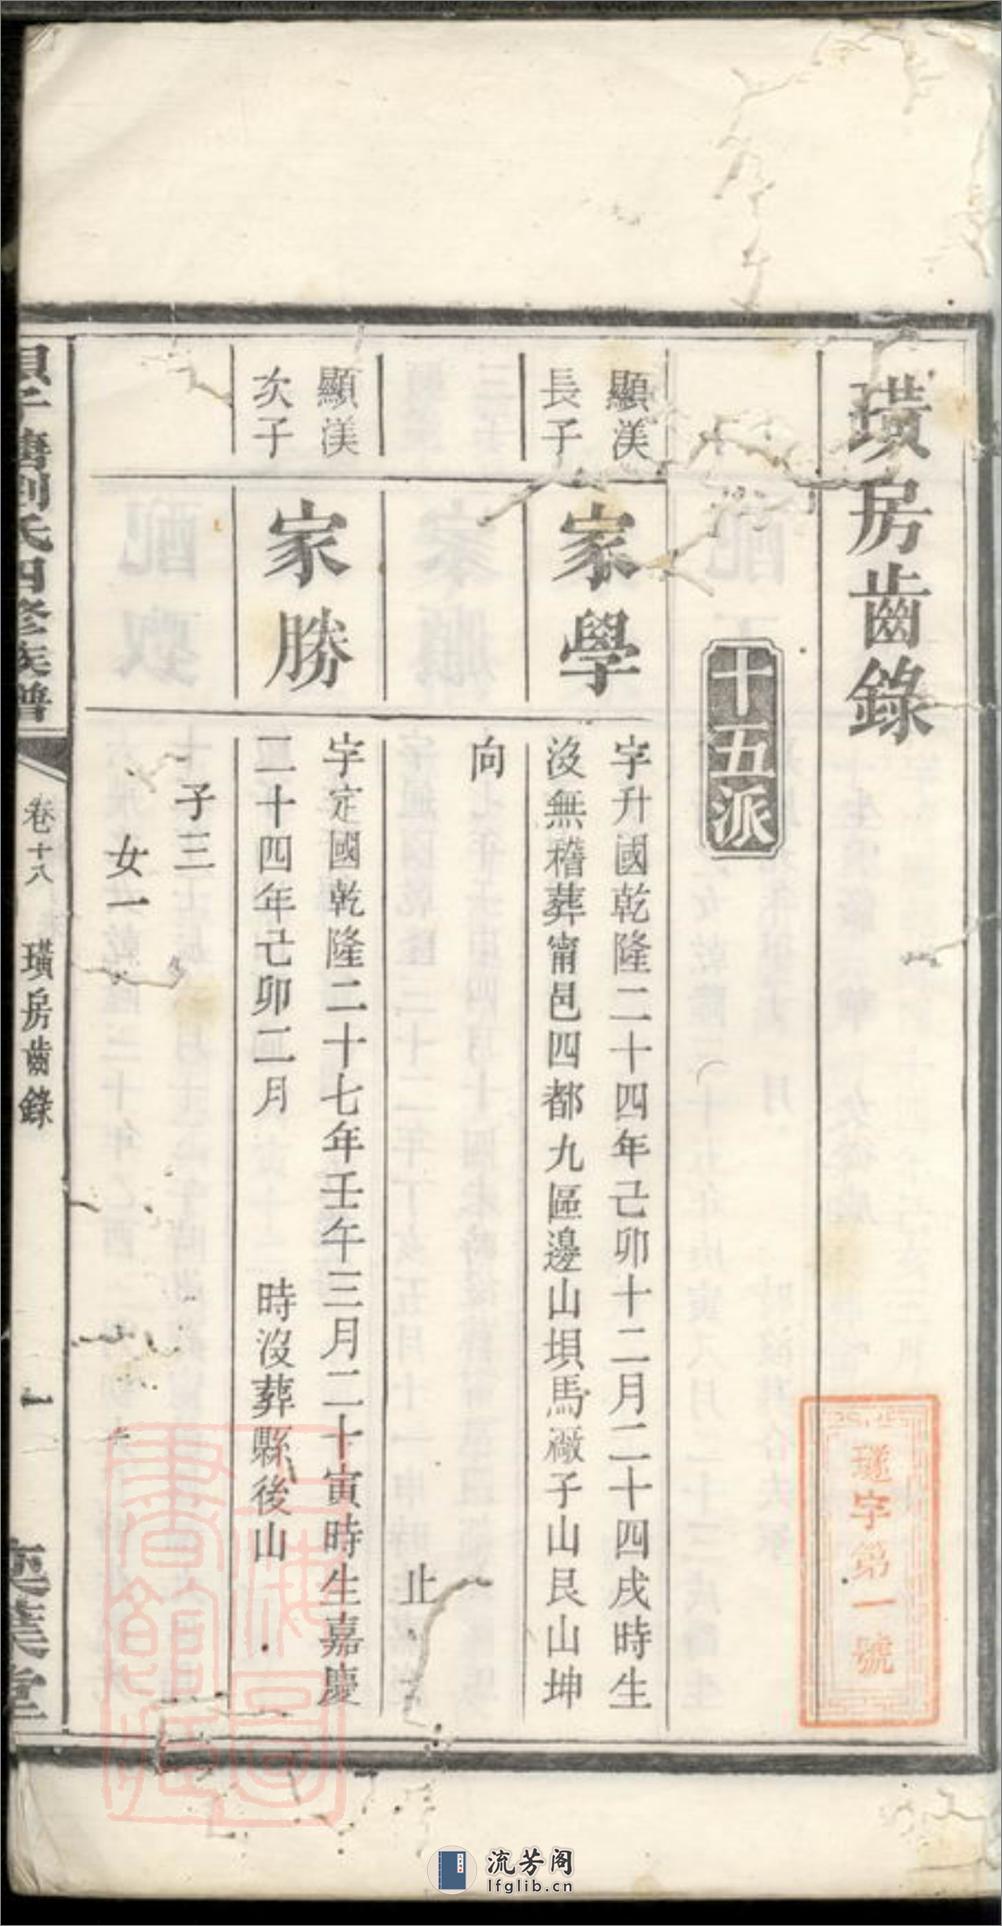 璜房齒錄
十五派
顯渼
長子
家學
字升國乾隆二十四年己卯十二月二十四戌時生
沒無稽葬甯邑四都九區邊山垻馬㘔子山艮山坤
向
止
顯渼
次子
家勝
字定國乾隆二十七年壬午三月二十寅時生嘉慶
二十四年己卯二月 時沒葬縣後山
子三
女一
塘劉氏四修族譜
卷十八
璜房齒錄
一
奕葉堂
璲字第一號
上海圖書館藏
流芳阁
lfglib.cn